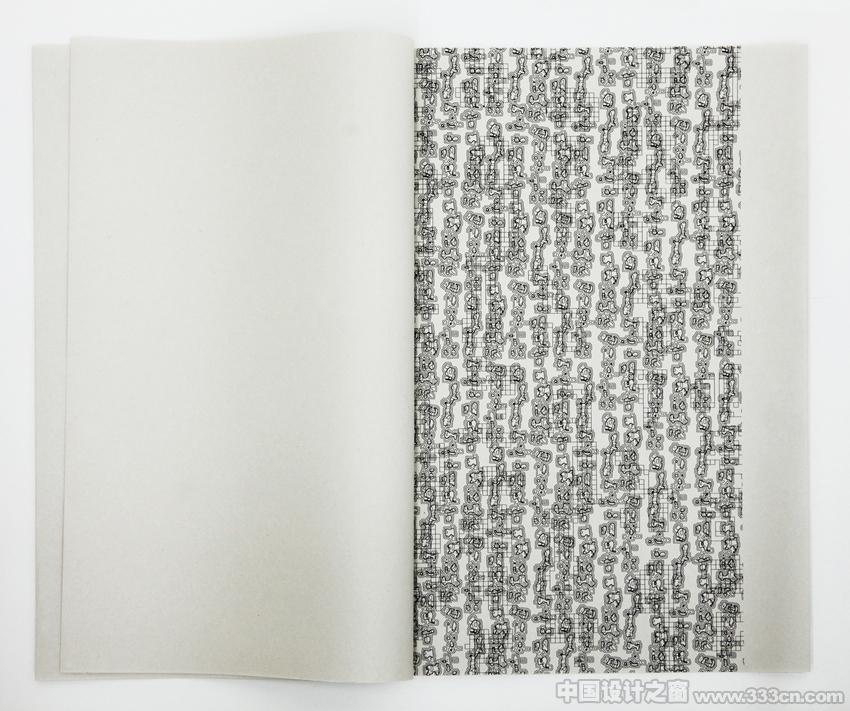 中国设计之窗 www.333cn.com